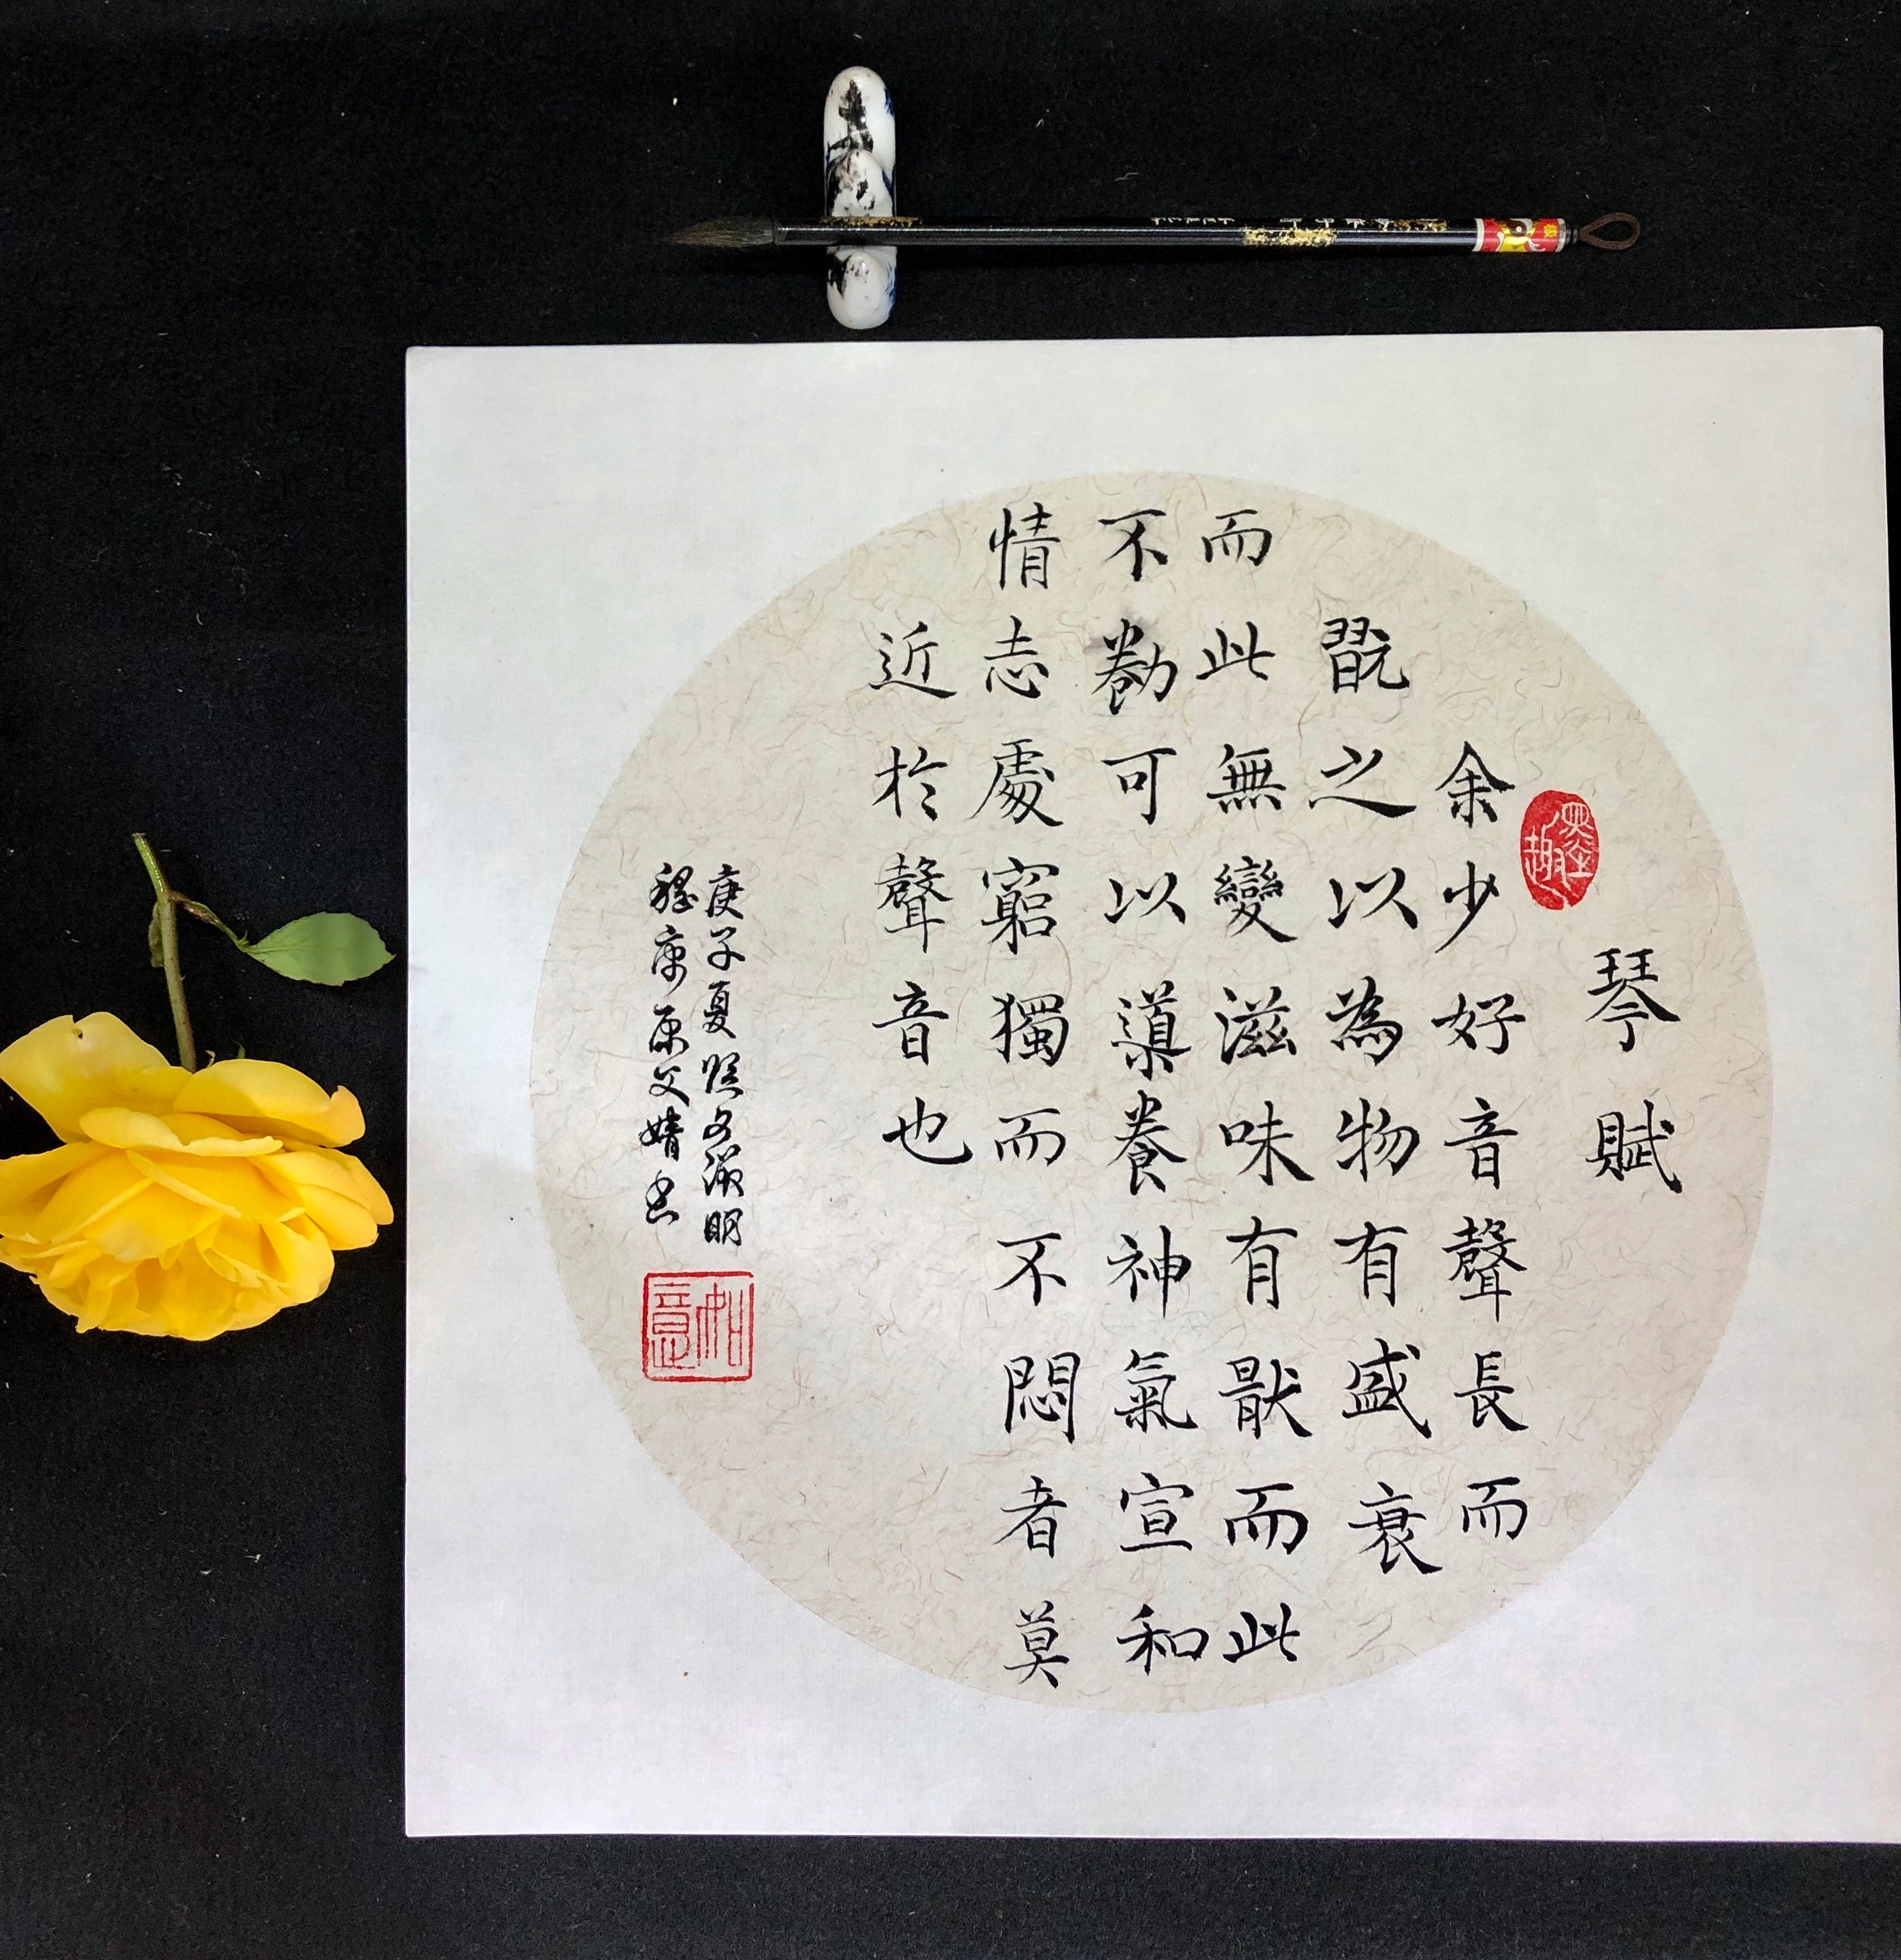 琴賦
余少好音聲長而
翫之以為物有盛衰
而此無變滋味有猒而此
不勌可以導養神氣宣和
情志處窮獨而不悶者莫
近於聲音也
庚子夏臨文徵明
嵇康原文婧书
如意